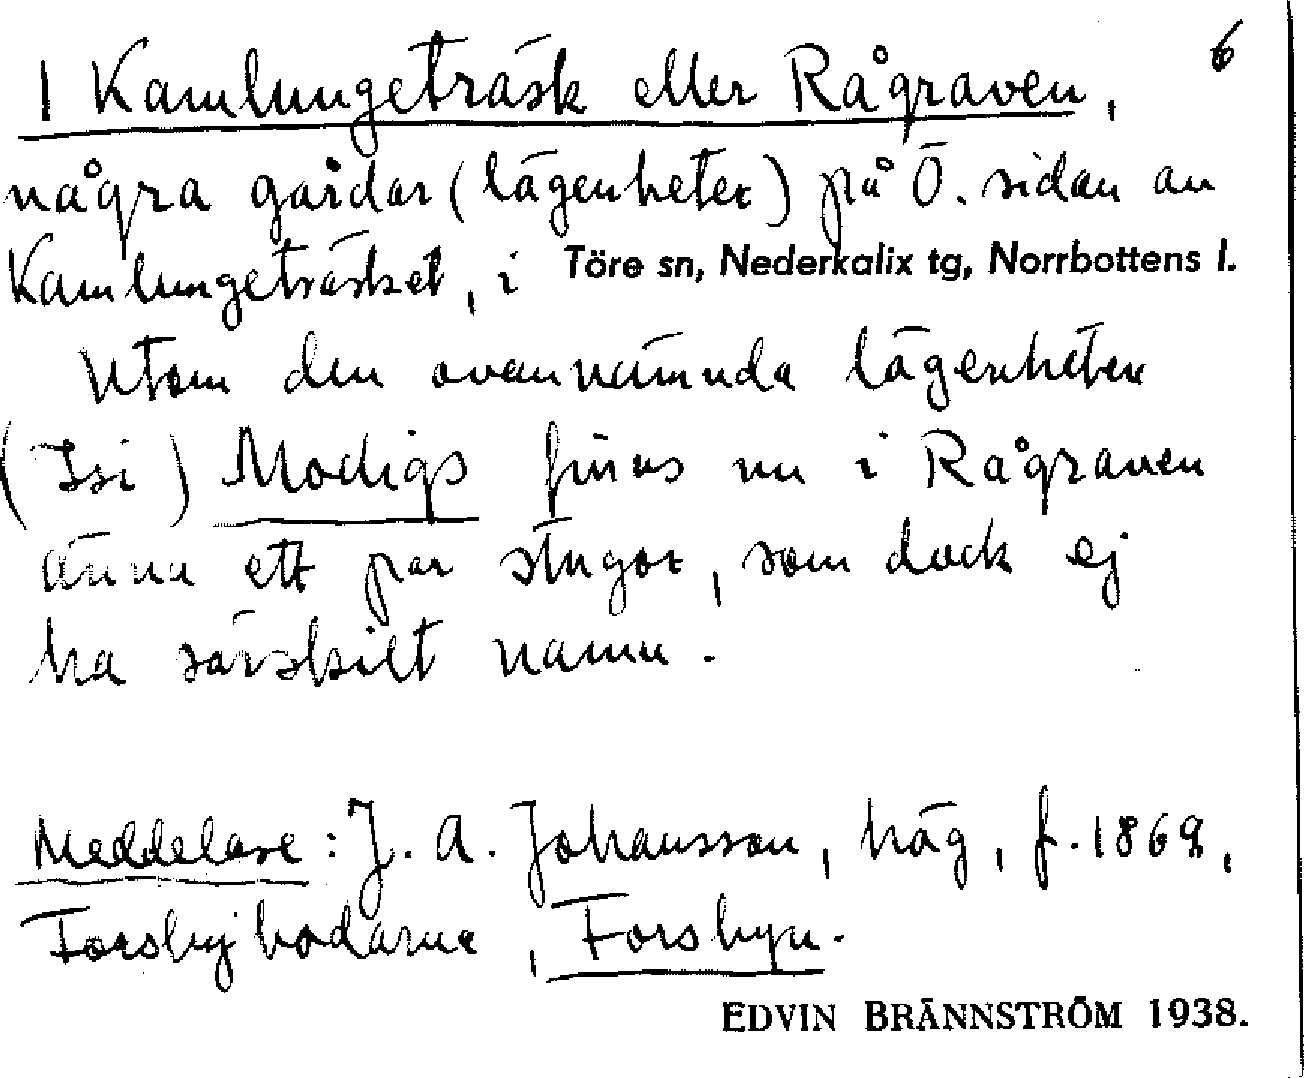 6
I Kamlungeträsk eller Rågraven,
några gårdar (lägenheter) på Ö. sidan av
Kamlungeträsket, i Töre sn, Nederkalix tg, Norrbottens l.
Utom den ovannämnda lägenheten
(Isi) Modigs finns nu i Rågraven
ännu ett par stugor, som dock ej
ha särskilt namn.
Meddelare: J. A. Johansson, häg, f. 1869,
Forsbybodarna, Forsbyn.
EDVIN BRÄNNSTRÖM 1938.